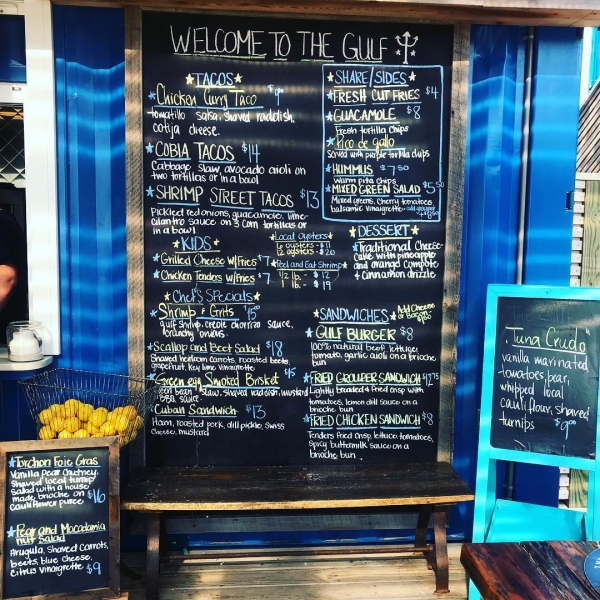 WELCOME TO THE GULF
TACOS
Chicken Curry Taco $9
tomatillo salsa, shaved raddish,
cotija cheese.
COBIA TACOS $14
Cabbage slaw, avocado aioli on
two tortillas or in a bowl
SHRIMP STREET TACOS $13
Pickled red onions, guacamole, lime-
cilantro sauce on 3 corn tortillas or
in a bowl
KIDS
Grilled Cheese w/Fries $7
Chicken Tenders w/Fries $7
Local oysters
6 oysters - $11
12 oysters - $20
Peel and Eat Shrimp
1/2 lb. - $12
1 lb. - $19
Chef's Specials
Shrimp & Grits $15
gulf shrimp, creole chorizo sauce,
crunchy onions.
Scallop and Beet Salad $18
Shaved heirloom carrots, roasted beets,
grapefruit, key lime vinaigrette
Green egg Smoked Brisket $15
slaw, shaved raddish, mustard
BBQ sauce
Cuban Sandwich $13
Ham, roasted pork, dill pickle, Swiss
Cheese, mustard
SHARE/SIDES
FRESH CUT FRIES $4
GUACAMOLE $8
Fresh tortilla Chips
Pico de gallo
Served with purple tortilla chips
HUMMUS $7.50
Warm pita chips
MIXED GREEN SALAD $5.50
Mixed greens, Cherry tomatoes
balsamic vinaigrette
DESSERT
Traditional Cheese-
cake with pineapple
and orange compote
+ cinnamon drizzle
SANDWICHES
Add Cheese
or Bacon
GULF BURGER $8
100% natural beef, lettuce,
tomato, garlic aioli on a brioche
bun
FRIED GROUPER SANDWICH $12.75
Lightly breaded & fried crisp with
tomatoes, lemon dill sauce on a
brioche bun
FRIED CHICKEN SANDWICH $8
Tenders fried crisp, lettuce, tomatoes,
Spicy buttermilk sauce on a
brioche bun
Tuna Crudo
vanilla marinated
tomatoes, pear,
whipped local
cauliflower, shaved
turnips
$9.00
Torchon Foie Gras
Vanilla Pear Chutney,
Shaved local turnip
Salad with a house
made brioche on $16
cauliflower puree
Pear and Macadamia
nut Salad
Arugula, shaved carrots,
beets, blue cheese,
citrus vinaigrette $9